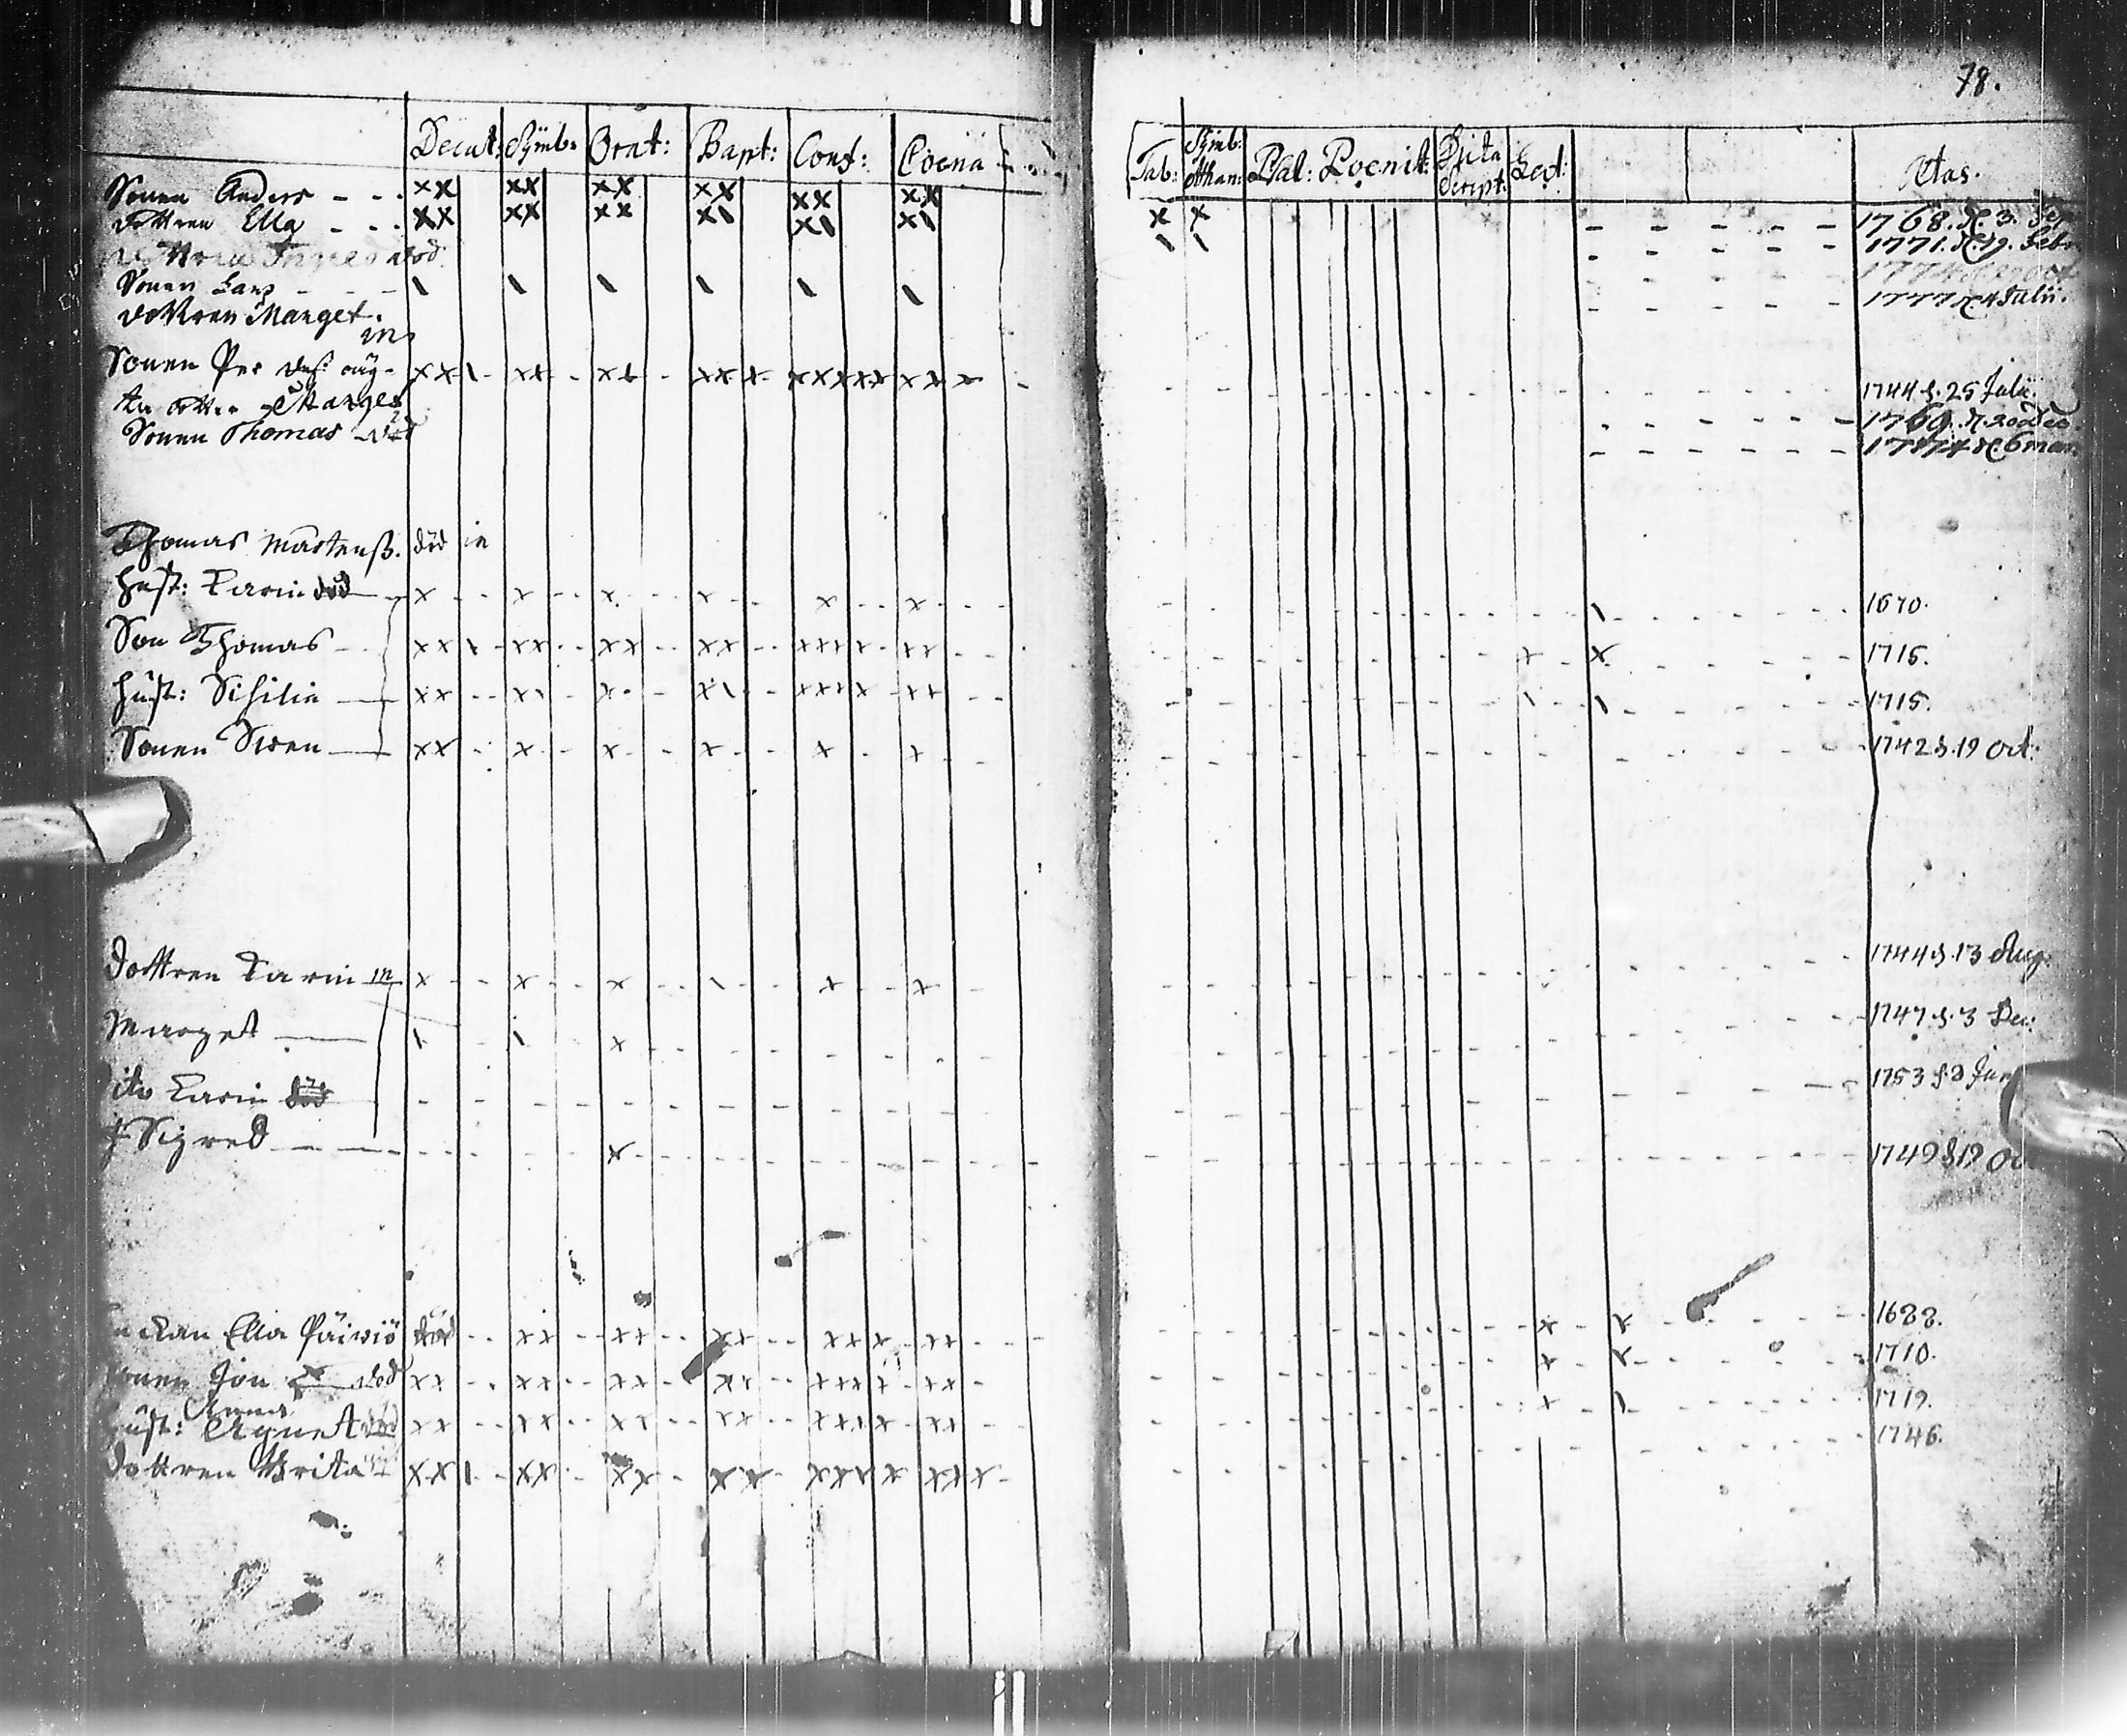 78.
Decal: Symb: Orat: Bapt: Conf: Coena Tab: Symb: Athan: Psal: Poenit: Dicta Script: Lect: Ætas.
Sonen Anders - - - xx xx xx xx xx xx x x - - - - - 1768. d. 3. Sep
dottren Ella - - - xx xx xx x\ x\ x\ \ \ - - - - - 1771. d. 19. Febr
död
Sonen Lars - - - \ \ \ \ \ \ - - - - - 1777 d. 4 Julii.
dottren Marget.
m
Sonen Per xx\ - xx - xx - xxx xxxxx xxx - 1744 d. 25 Julii.
dotter Marget - - - - - 1769. d. 20 Dec.
Sonen Thomas död - - - - - 1774 d. 6 mar
Thomas Mårtenss. död
hust: Karin död x - - x - - x - - x - - x - - x - - - \ - - 1670.
Son Thomas xx x xx - - xx - - xx - - xxxx x xx - - x x - - 1715.
hust: Sisilia xx - - x\ - - x - - x\ - - xxx x xx - - \ \ - - 1715.
Sonen Swen xx - x - x - x - x - x - - 1742 d. 19 Oct:
dottren Karin m x - - x - - x - - \ - - x - - x - - 1744 d. 13 Aug:
Marget \ - \ - x - - - 1747 d. 3 Dec:
Karin död - - - - - 1753 d. 8 Jun
Sigred - - - x - - - 1749 d 19 Oc
Ella Päiviö död - - xx - - xx - - xx - - xxx xx - - x x - - 1688.
Sonen Jon död xx - - xx - - xx - - xx - - xxx x xx - x x - - 1710.
Anna
hust: Agnet död xx - - xx - - xx - - xx - - xxxx x xx - - x \ - - 1719.
dottren Brita xx \ - xx - xx - xx - xxx x xxx - - 1746.